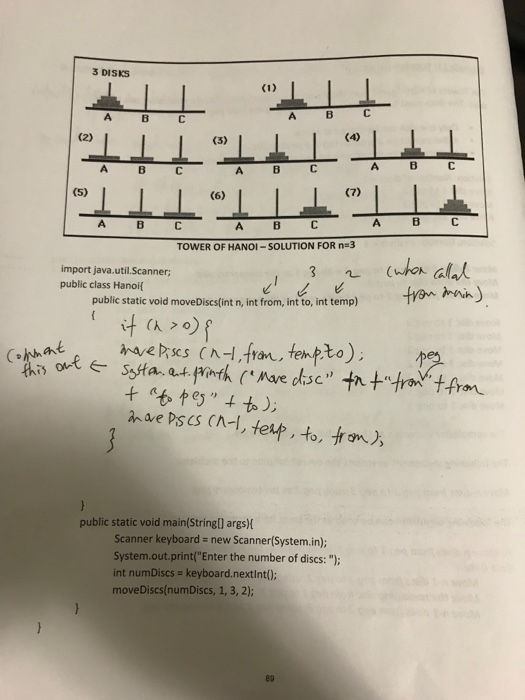 3 DISKS
(1)
A B C
A B C
(2)
(3)
(4)
A B C
A B C
A B C
(5)
(6)
(7)
A B C
A B C
A B C
TOWER OF HANOI – SOLUTION FOR n=3
import java.util.Scanner;
public class Hanoi{
1 3 2 (when called from main)
public static void moveDiscs(int n, int from, int to, int temp)
{
if (n > 0) {
moveDiscs (n-1, from, temp, to);
Comment this out ← System.out.println ("Move disc" +n +"from peg" + from
+ "to peg" + to);
moveDiscs (n-1, temp, to, from);
}
}
public static void main(String[] args){
Scanner keyboard = new Scanner(System.in);
System.out.print("Enter the number of discs: ");
int numDiscs = keyboard.nextInt();
moveDiscs(numDiscs, 1, 3, 2);
}
}
89